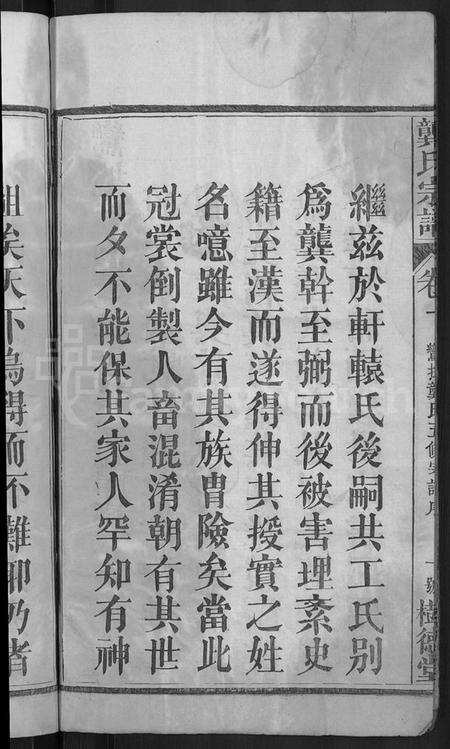 龔氏宗譜
卷一
龔氏五修宗譜序
樹德堂
繼茲於軒轅氏後嗣共工氏別
爲龔幹至弼而後被害埋紊史
籍至漢而遂得伸其投實之姓
名噫雖今有其族冑險矣當此
冠裳倒製人畜混淆朝有其世
而夕不能保其家人罕知有神
祖矣天下烏得而不難耶乃者